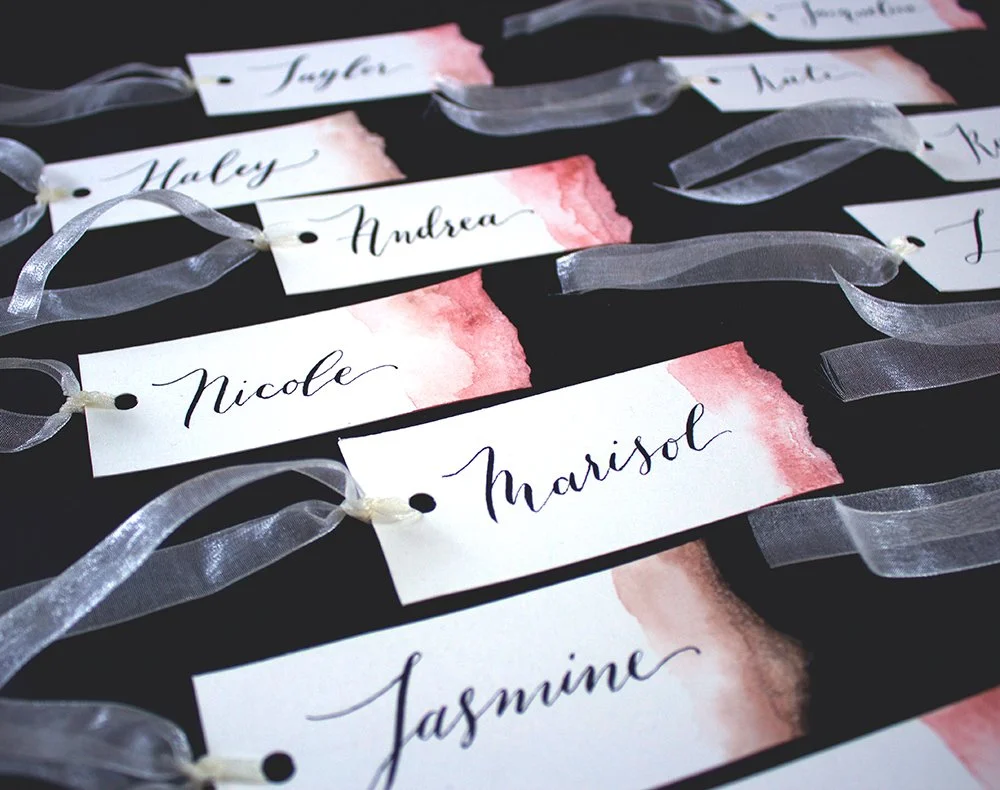 Jacqueline
Taylor
Kate
Haley
Andrea
Nicole
Marisol
Jasmine